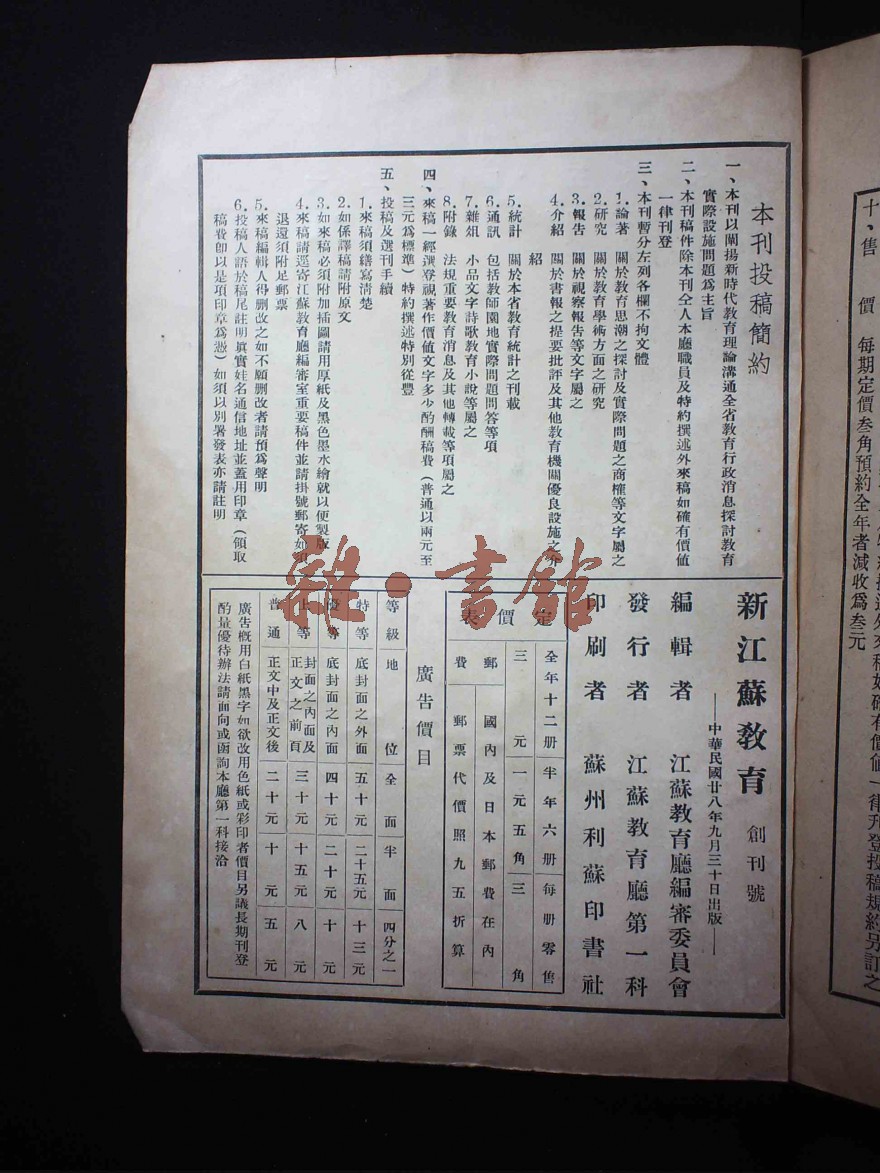 本刊投稿簡約
一、本刊以闡揚新時代教育理論溝通全省教育行政消息探討教育
實際設施問題爲主旨
二、本刊稿件除本刊仝人本廳職員及特約撰述外來稿如確有價値
一律刊登
三、本刊暫分左列各欄不拘文體
1.論著　關於教育思潮之探討及實際問題之商榷等文字屬之
2.研究　關於教育學術方面之研究
3.報告　關於視察報告等文字屬之
4.介紹　關於書報之提要批評及其他教育機關優良設施之介
紹
5.統計　關於本省教育統計之刊載
6.通訊　包括教師園地實際問題問答等項
7.雜俎　小品文字詩歌教育小說等屬之
8.附錄　法規重要教育消息及其他轉載等項屬之
四、來稿一經選登視著作價値文字多少酌酬稿費（普通以兩元至
三元爲標準）特約撰述特別從豐
五、投稿及選刊手續
1.來稿須繕寫清楚
2.如係譯稿請附原文
3.如來稿必須附加插圖請用厚紙及黑色墨水繪就以便製版
4.來稿請逕寄江蘇教育廳編審室重要稿件並請掛號郵寄如須
退還須附足郵票
5.來稿編輯人得删改之如不願删改者請預爲聲明
6.投稿人請於稿尾註明眞實姓名通信地址並蓋用印章（領取
稿費卽以是項印章爲憑）如須以別署發表亦請註明
新江蘇教育　創刊號
——中華民國廿八年九月三十日出版——
編輯者　江蘇教育廳編審委員會
發行者　江蘇教育廳第一科
印刷者　蘇州利蘇印書社
定價表
全年十二册　半年六册　每册零售
三元　一元五角　三角
郵費　國內及日本郵費在內
郵票代價照九五折算
廣告價目
等級　地位　全面　半面　四分之一
特等　底封面之外面　五十元　二十五元　十三元
優等　底封面之內面　四十元　二十元　十元
上等　封面之內面及正文之前頁　三十元　十五元　八元
普通　正文中及正文後　二十元　十元　五元
廣告概用白紙黑字如欲改用色紙或彩印者價目另議長期刊登
酌量優待辦法請面向或函詢本廳第一科接洽
雜·書舘
十、售　價　每期定價叁角預約全年者減收爲叁元
外來稿如確有價値一律刊登投稿規約另訂之